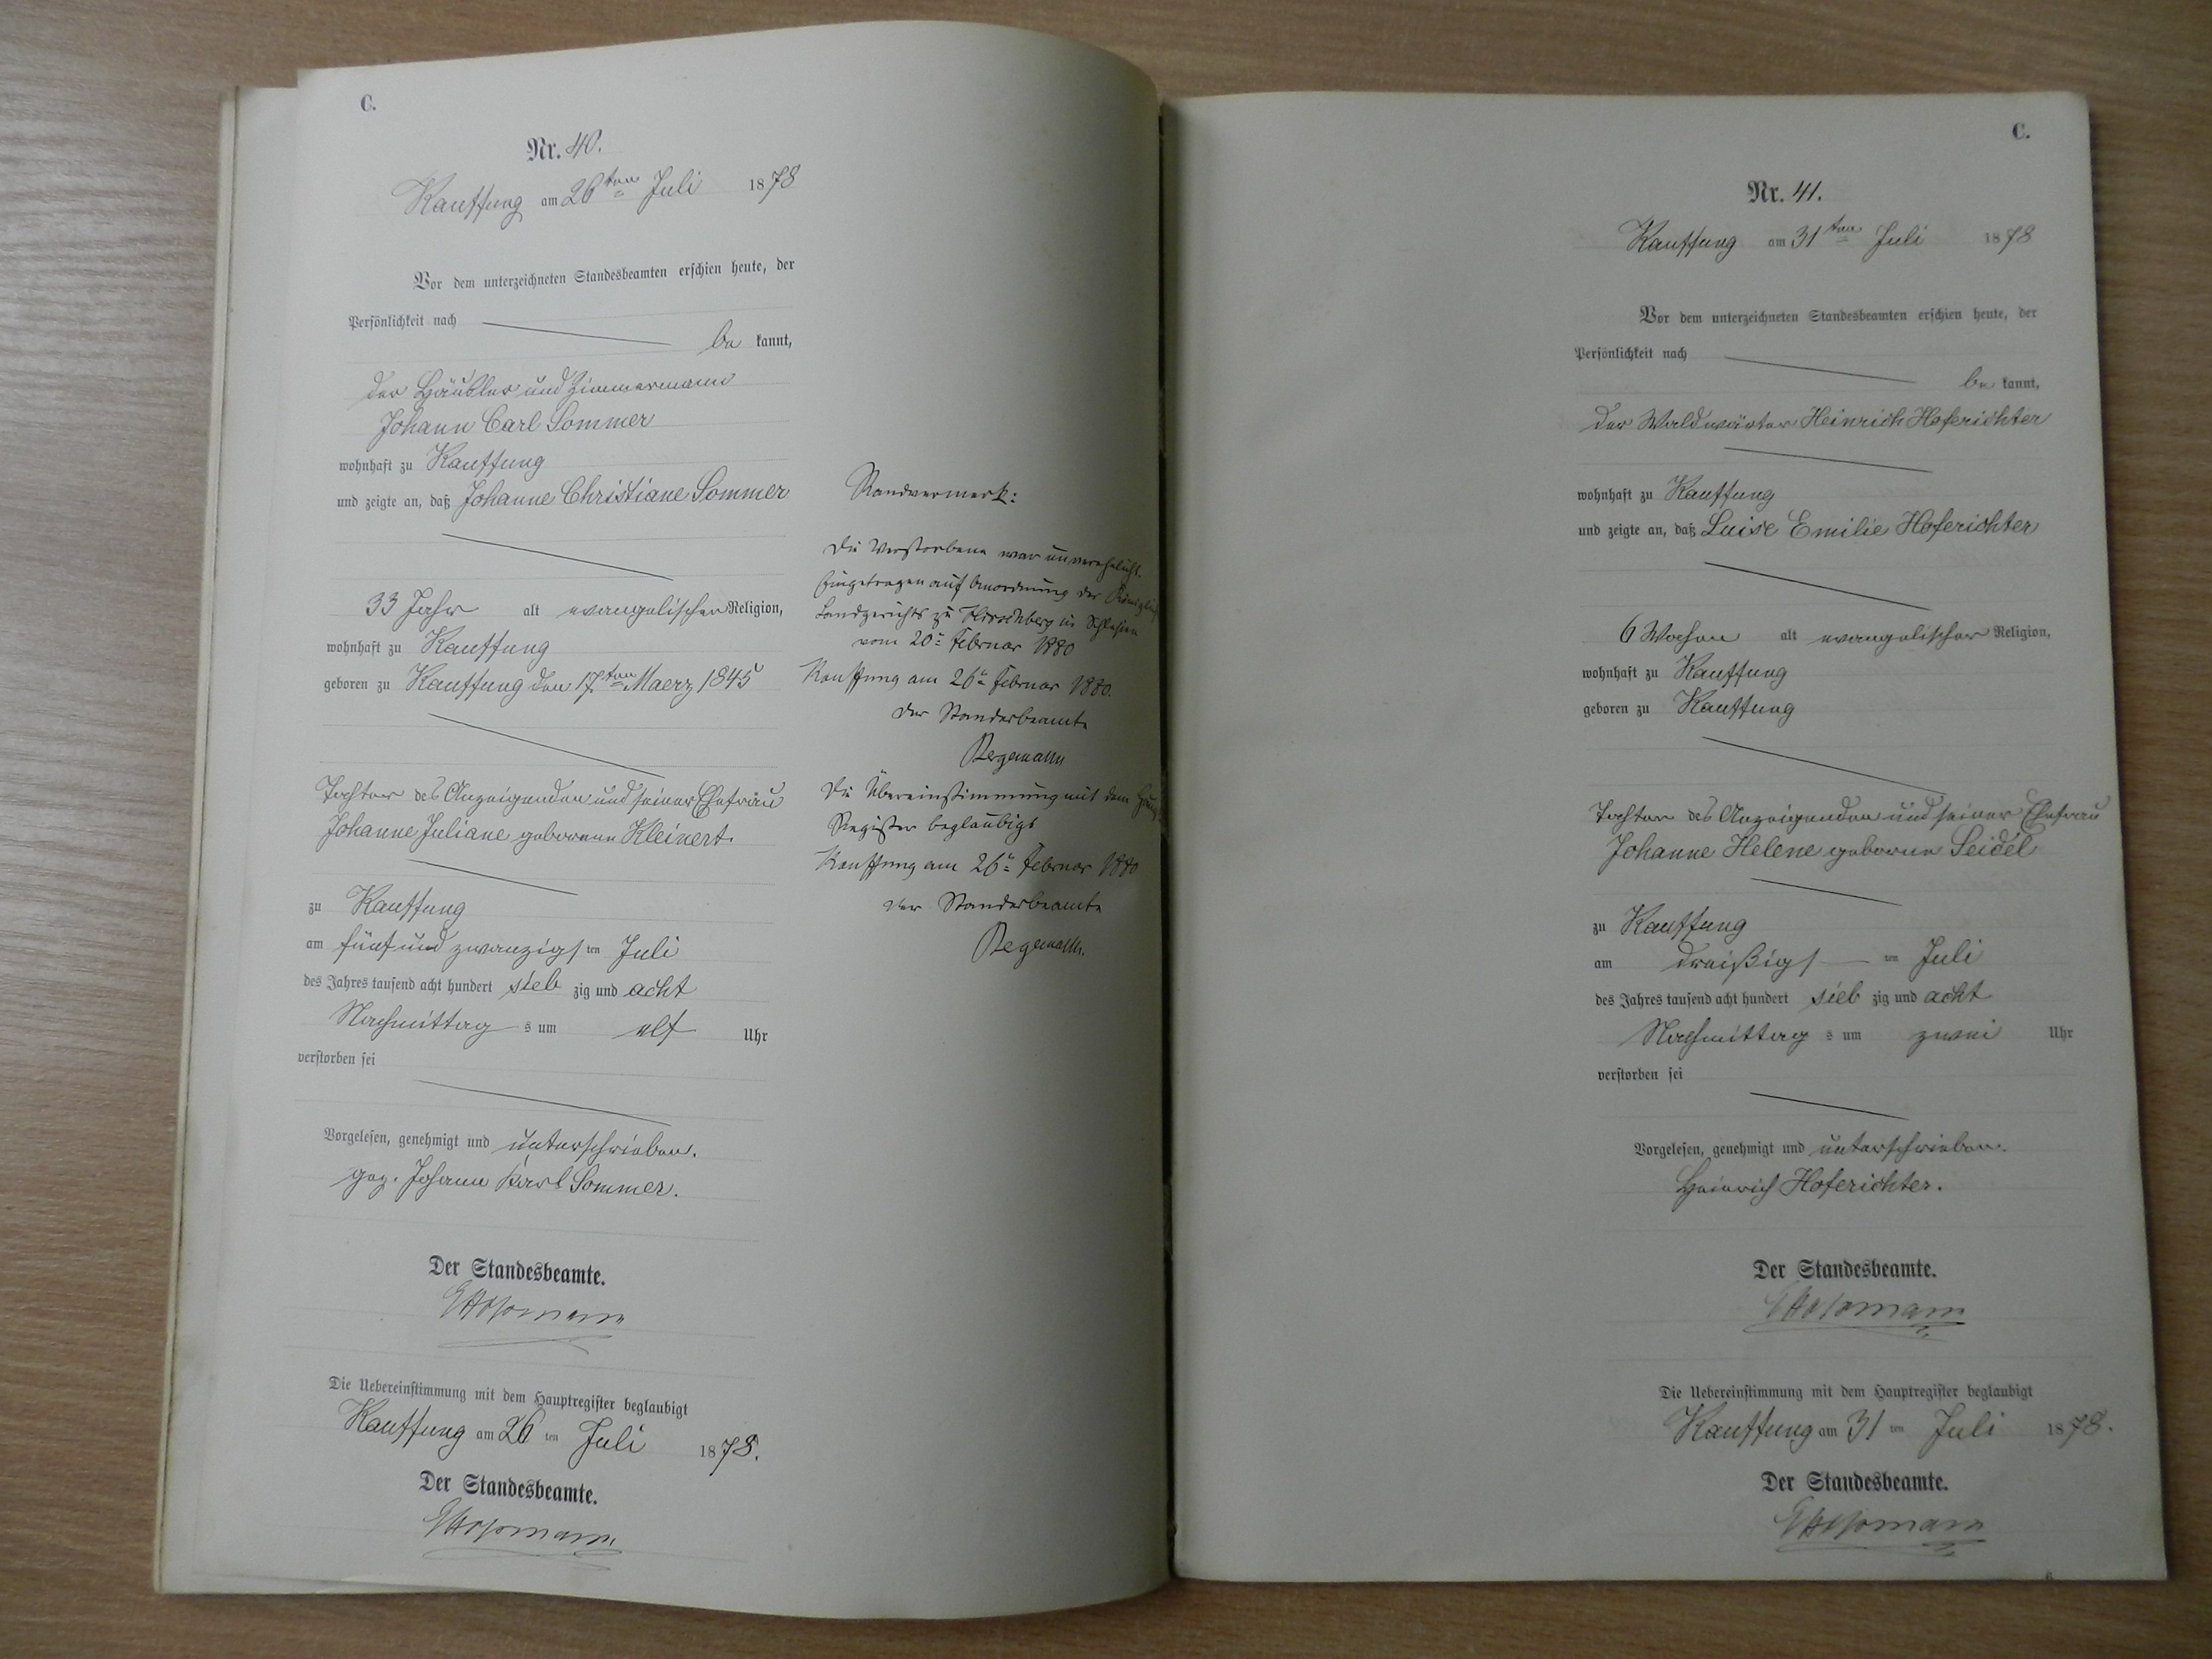 C.
Nr. 40.
Kauffung am 26ten Juli 1878
Vor dem unterzeichneten Standesbeamten erschien heute, der
Persönlichkeit nach
be kannt,
der Häusler und Zimmermann
Johann Carl Sommer
wohnhaft zu Kauffung
und zeigte an, daß Johanne Christiane Sommer
33 Jahr alt evangelischer Religion,
wohnhaft zu Kauffung
geboren zu Kauffung den 17ten Maerz 1845
Tochter des Anzeigenden und seiner Ehefrau
Johanne Juliane geborene Kleinert.
zu Kauffung
am fünfund zwanzigs ten Juli
des Jahres tausend acht hundert sieb zig und acht
Nachmittag s um elf Uhr
verstorben sei
Vorgelesen, genehmigt und unterschrieben.
gez. Johann Karl Sommer.
Der Standesbeamte.
Die Uebereinstimmung mit dem Hauptregister beglaubigt
Kauffung am 26 ten Juli 1878.
Der Standesbeamte.
Randvermerk:
Die Verstorbene war unverehelicht.
Eingetragen auf Anordnung des
Landgerichts zu Hirschberg in Schlesien
vom 20ten Februar 1880
Kauffung am 26ten Februar 1880.
Der Standesbeamte
Die Übereinstimmung mit dem
Register beglaubigt
Kauffung am 26ten Februar 1880
Der Standesbeamte
C.
Nr. 41.
Kauffung am 31ten Juli 1878
Vor dem unterzeichneten Standesbeamten erschien heute, der
Persönlichkeit nach
be kannt,
der Waldwärter Heinrich Hoferichter
wohnhaft zu Kauffung
und zeigte an, daß Luise Emilie Hoferichter
6 Wochen alt evangelischer Religion,
wohnhaft zu Kauffung
geboren zu Kauffung
Tochter des Anzeigenden und seiner Ehefrau
Johanne Helene geborne Seidel
zu Kauffung
am dreißigs ten Juli
des Jahres tausend acht hundert sieb zig und acht
Nachmittag s um zwei Uhr
verstorben sei
Vorgelesen, genehmigt und unterschrieben.
Heinrich Hoferichter.
Der Standesbeamte.
Die Uebereinstimmung mit dem Hauptregister beglaubigt
Kauffung am 31 ten Juli 1878.
Der Standesbeamte.
6